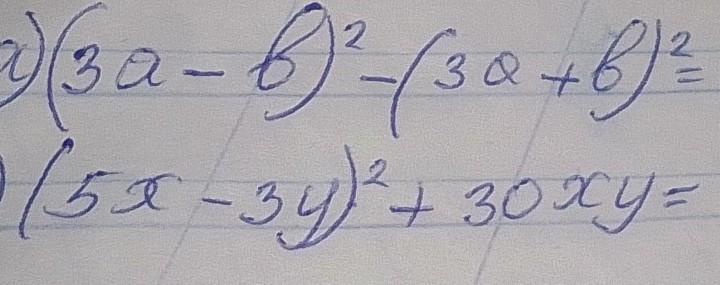 а) (3a - b)² - (3a + b)² =
) (5x - 3y)² + 30xy =